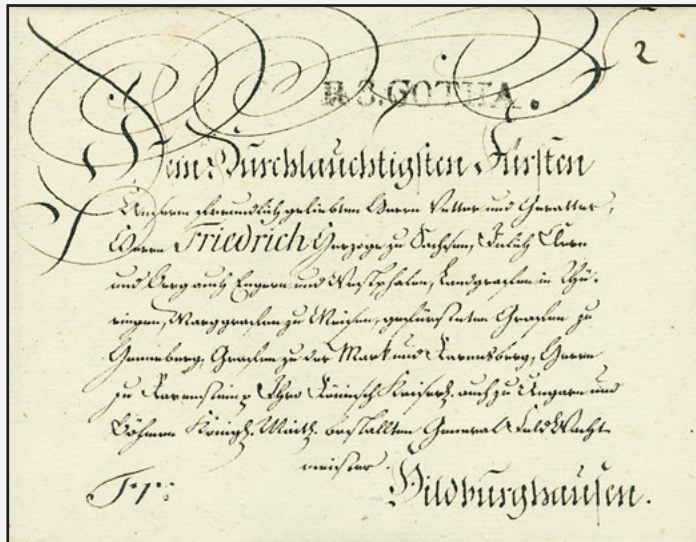 2
R 3. GOTHA.
Dem Durchlauchtigsten Fürsten
Unserm freundlich geliebten Herrn Vetter und Gevatter,
Herrn Friedrich Herzoge zu Sachsen, Jülich Cleve
und Berg auch Engern und Westphalen, Landgrafen in Thü-
ringen, Marggrafen zu Meißen, gefürsteten Grafen zu
Henneberg, Grafen zu der Mark und Ravensberg, Herrn
zu Ravenstein Ihro Römisch Kaiserl. auch zu Ungarn und
Böhmen Königl. Maith. bestallten General Feld Wacht-
meister.
Hildburghausen.